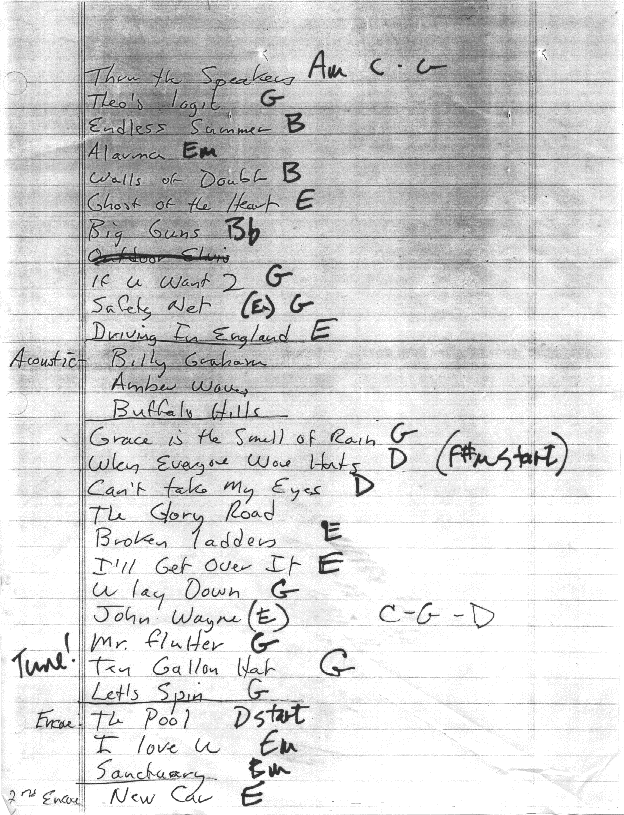 Thru the Speakers Am C - G
Theo's logic G
Endless Summer B
Alarma Em
Walls of Doubt B
Ghost of the Heart E
Big Guns Bb
Outdoor Elvis
If U Want 2 G
Safety Net (E) G
Driving In England E
Acoustic - Billy Graham
Amber Waves
Buffalo Hills
Grace is the Smell of Rain G
When Everyone Wore Hats D (F#m start)
Can't take My Eyes D
The Glory Road
Broken ladders E
I'll Get Over It E
U lay Down G
John Wayne (E) C-G-D
Mr. flutter G
Tune! Ten Gallon Hat G
Let's Spin G
Encore - The Pool D start
I love U Em
Sanctuary Em
2nd Encore New Car E